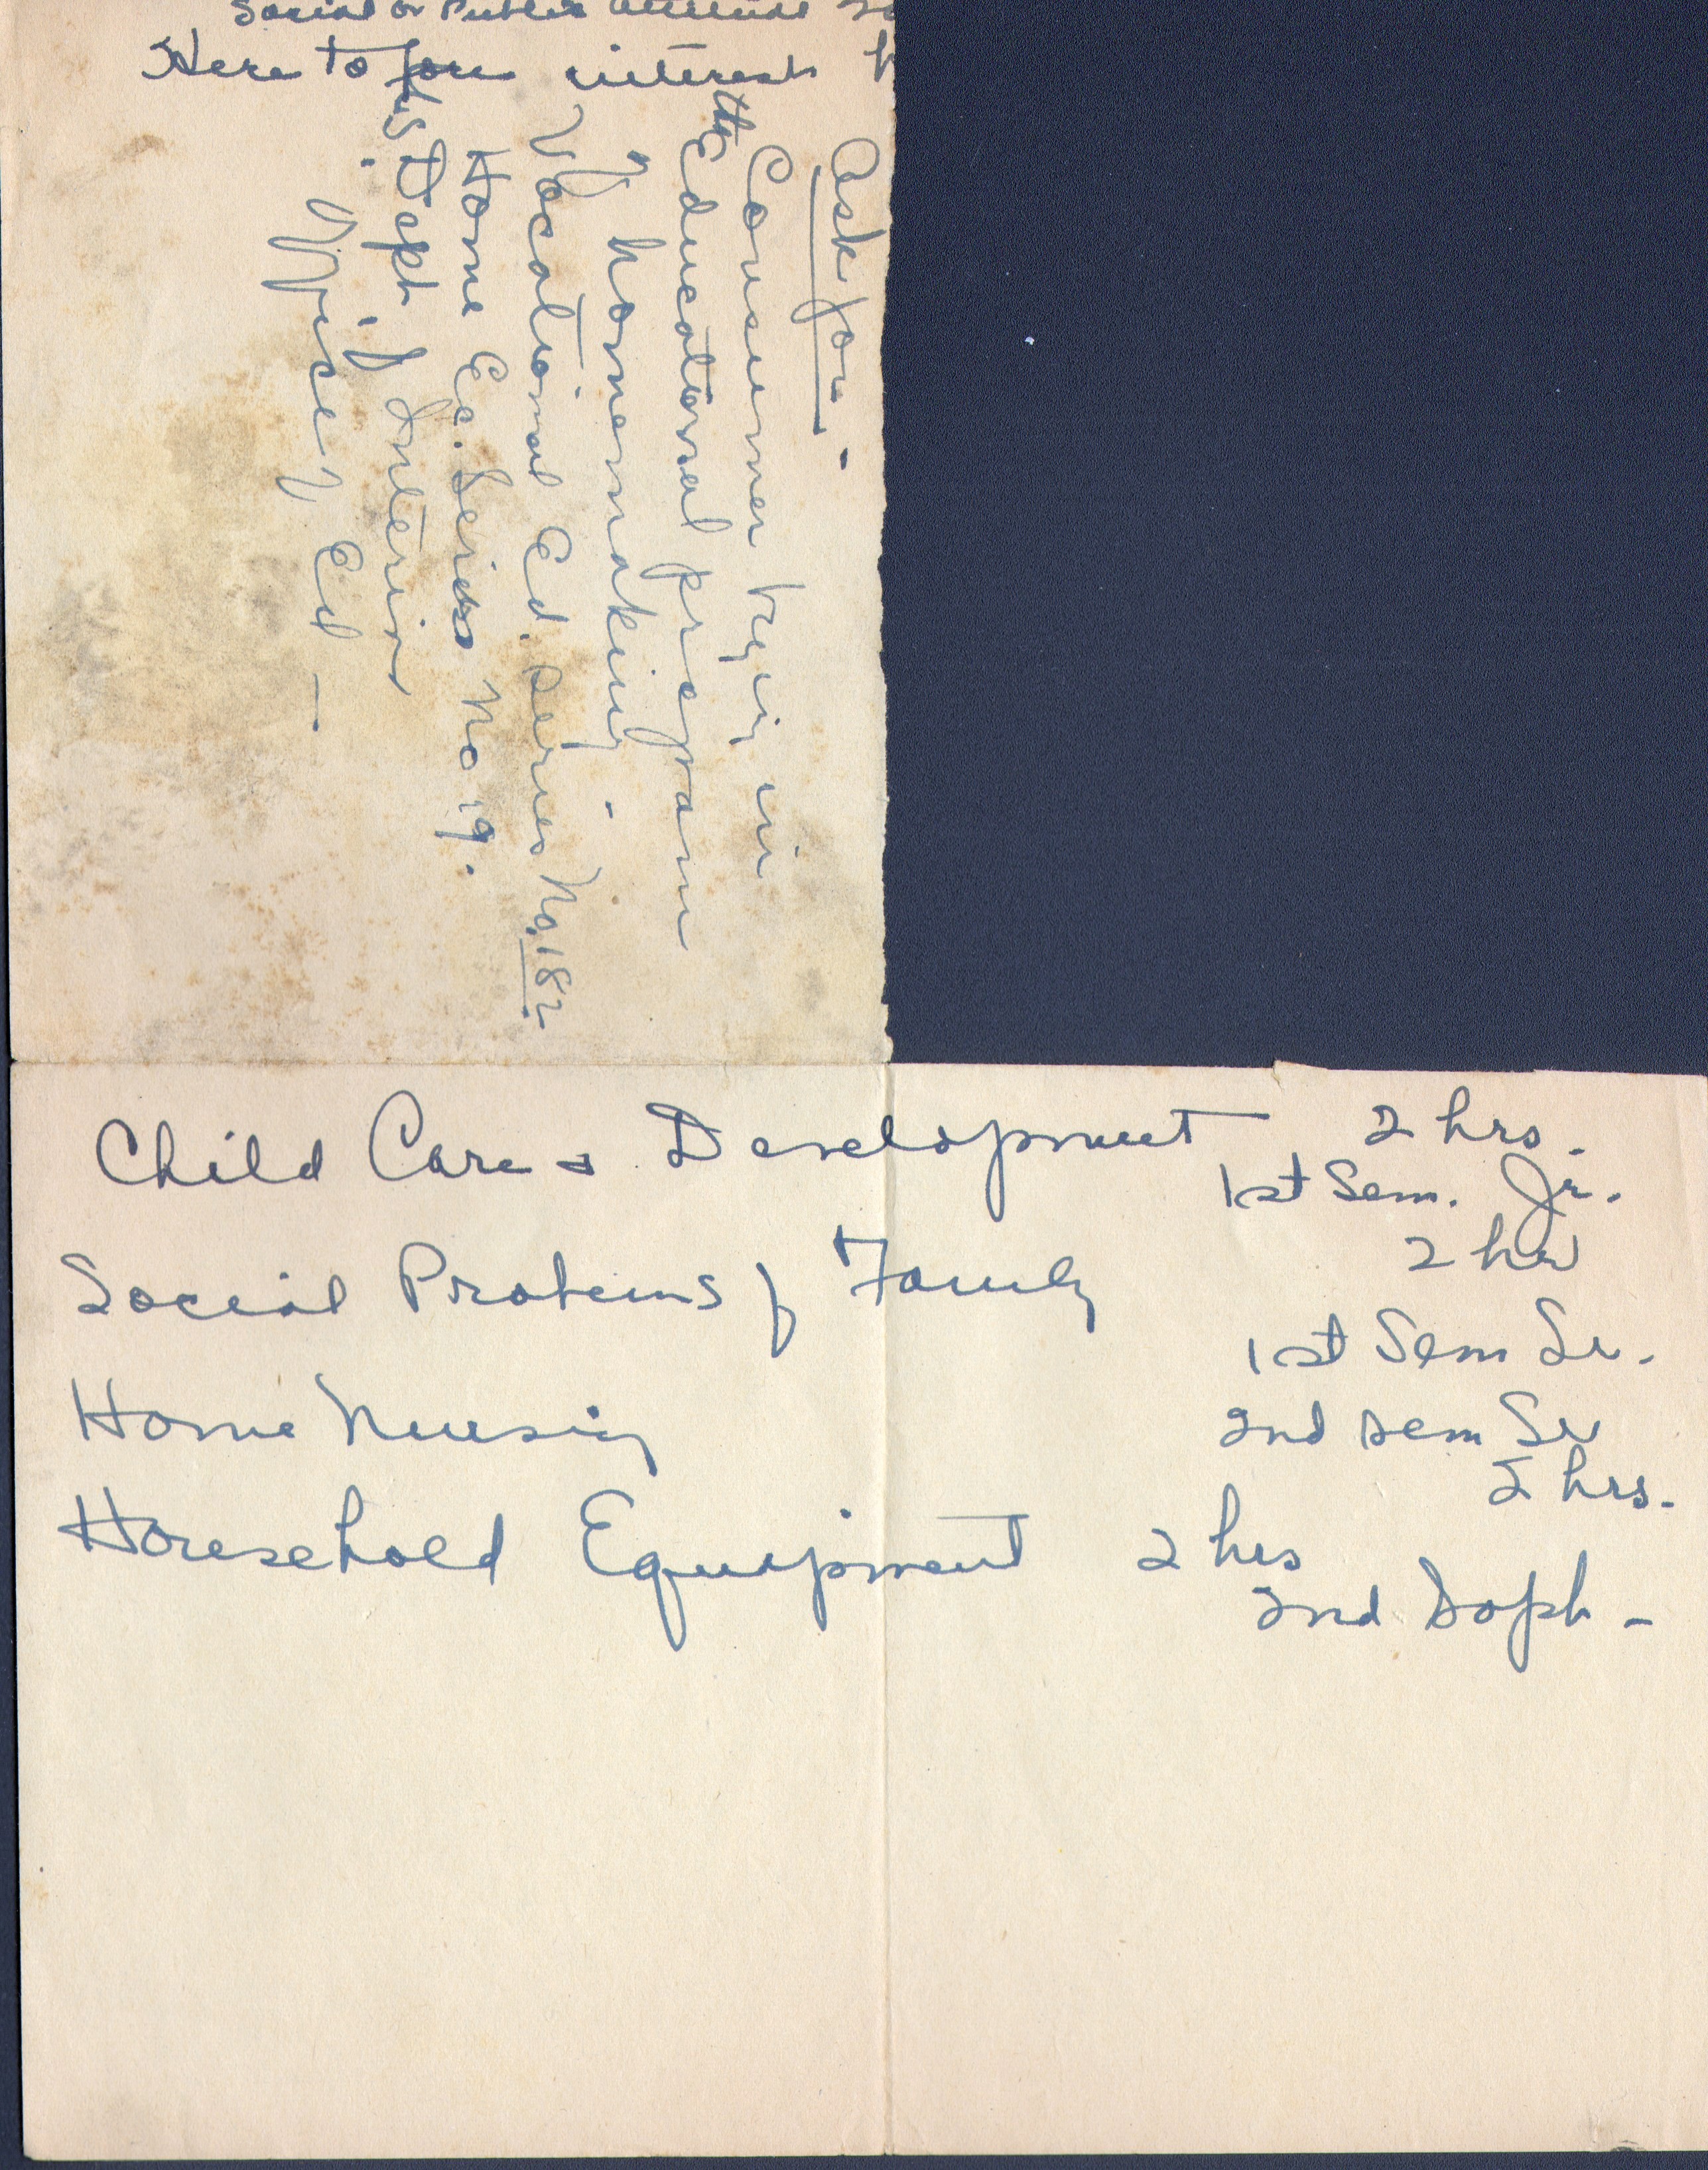 Social or Public attitude
Here to fore interest
Ask for -
Consumer buying in
the Educational program
of homemaking -
Vocational Ed. series No. 182
Home Ec. Series No 19.
U.S. Dept. of Interior
Office of Ed -
Child Care & Development 2 hrs.
1st Sem. Jr.
Social Problems of Family 2 hrs
1st Sem Sr.
Home Nursing 2nd sem Sr
2 hrs.
Household Equipment 2 hrs
2nd Soph -